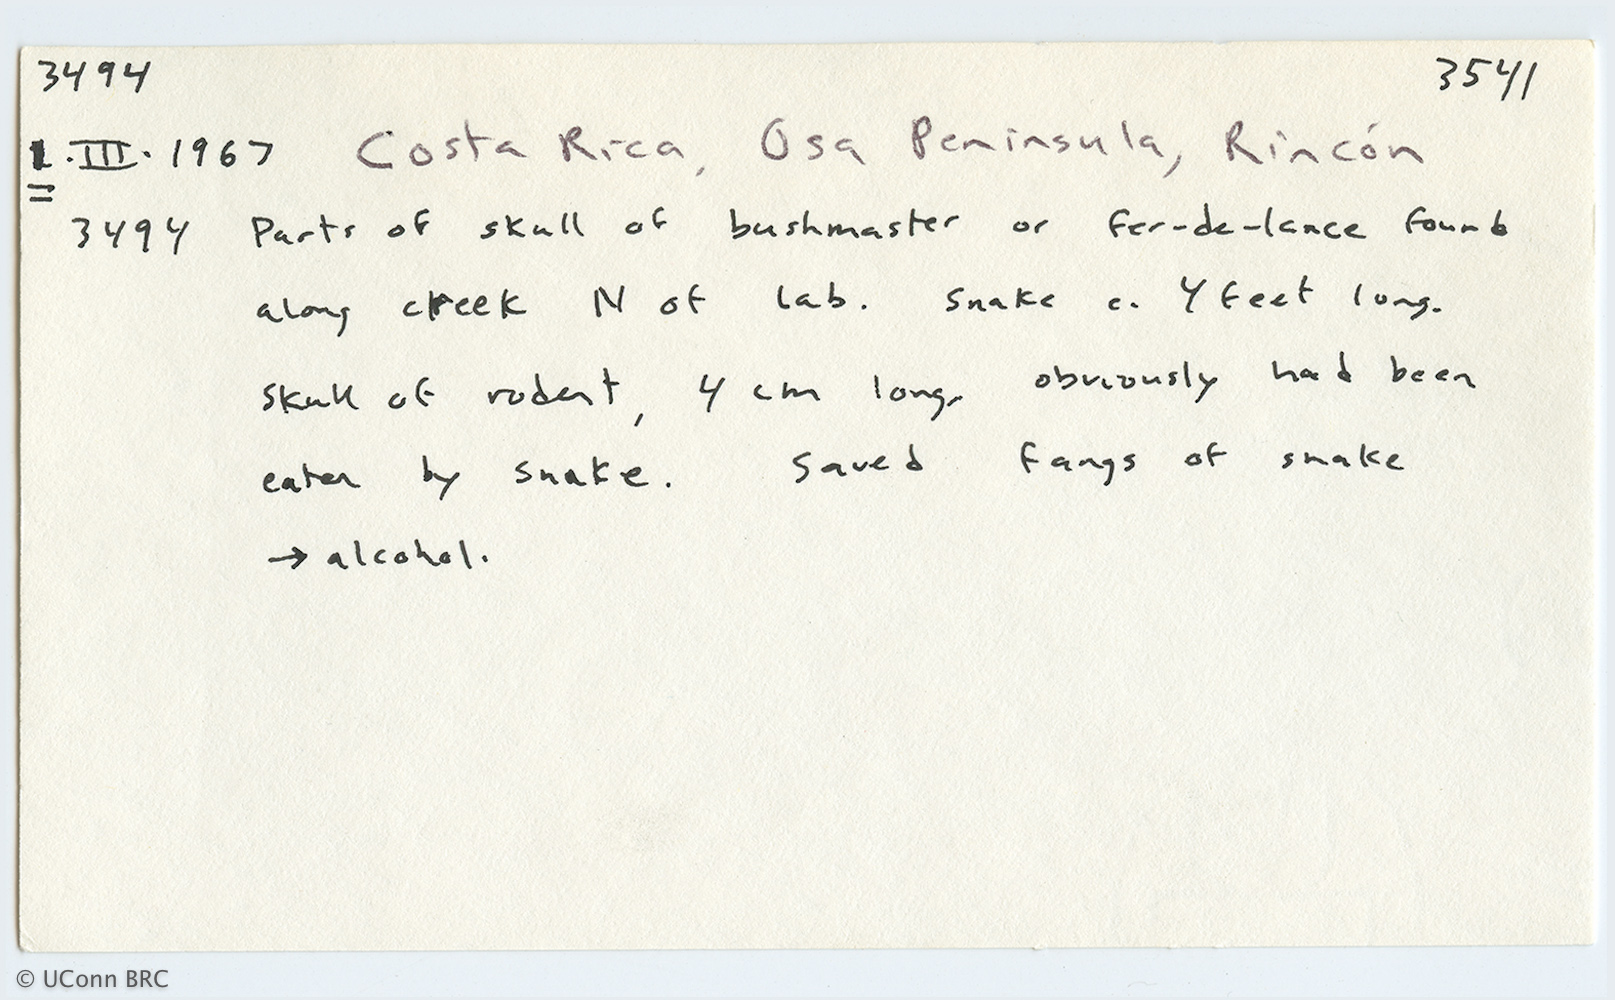 3494 3541
1.III.1967 Costa Rica, Osa Peninsula, Rincón
3494 Parts of skull of bushmaster or fer-de-lance found
along creek N of lab. Snake c. 4 feet long.
Skull of rodent, 4 cm long, obviously had been
eaten by snake. Saved fangs of snake
→ alcohol.
© UConn BRC